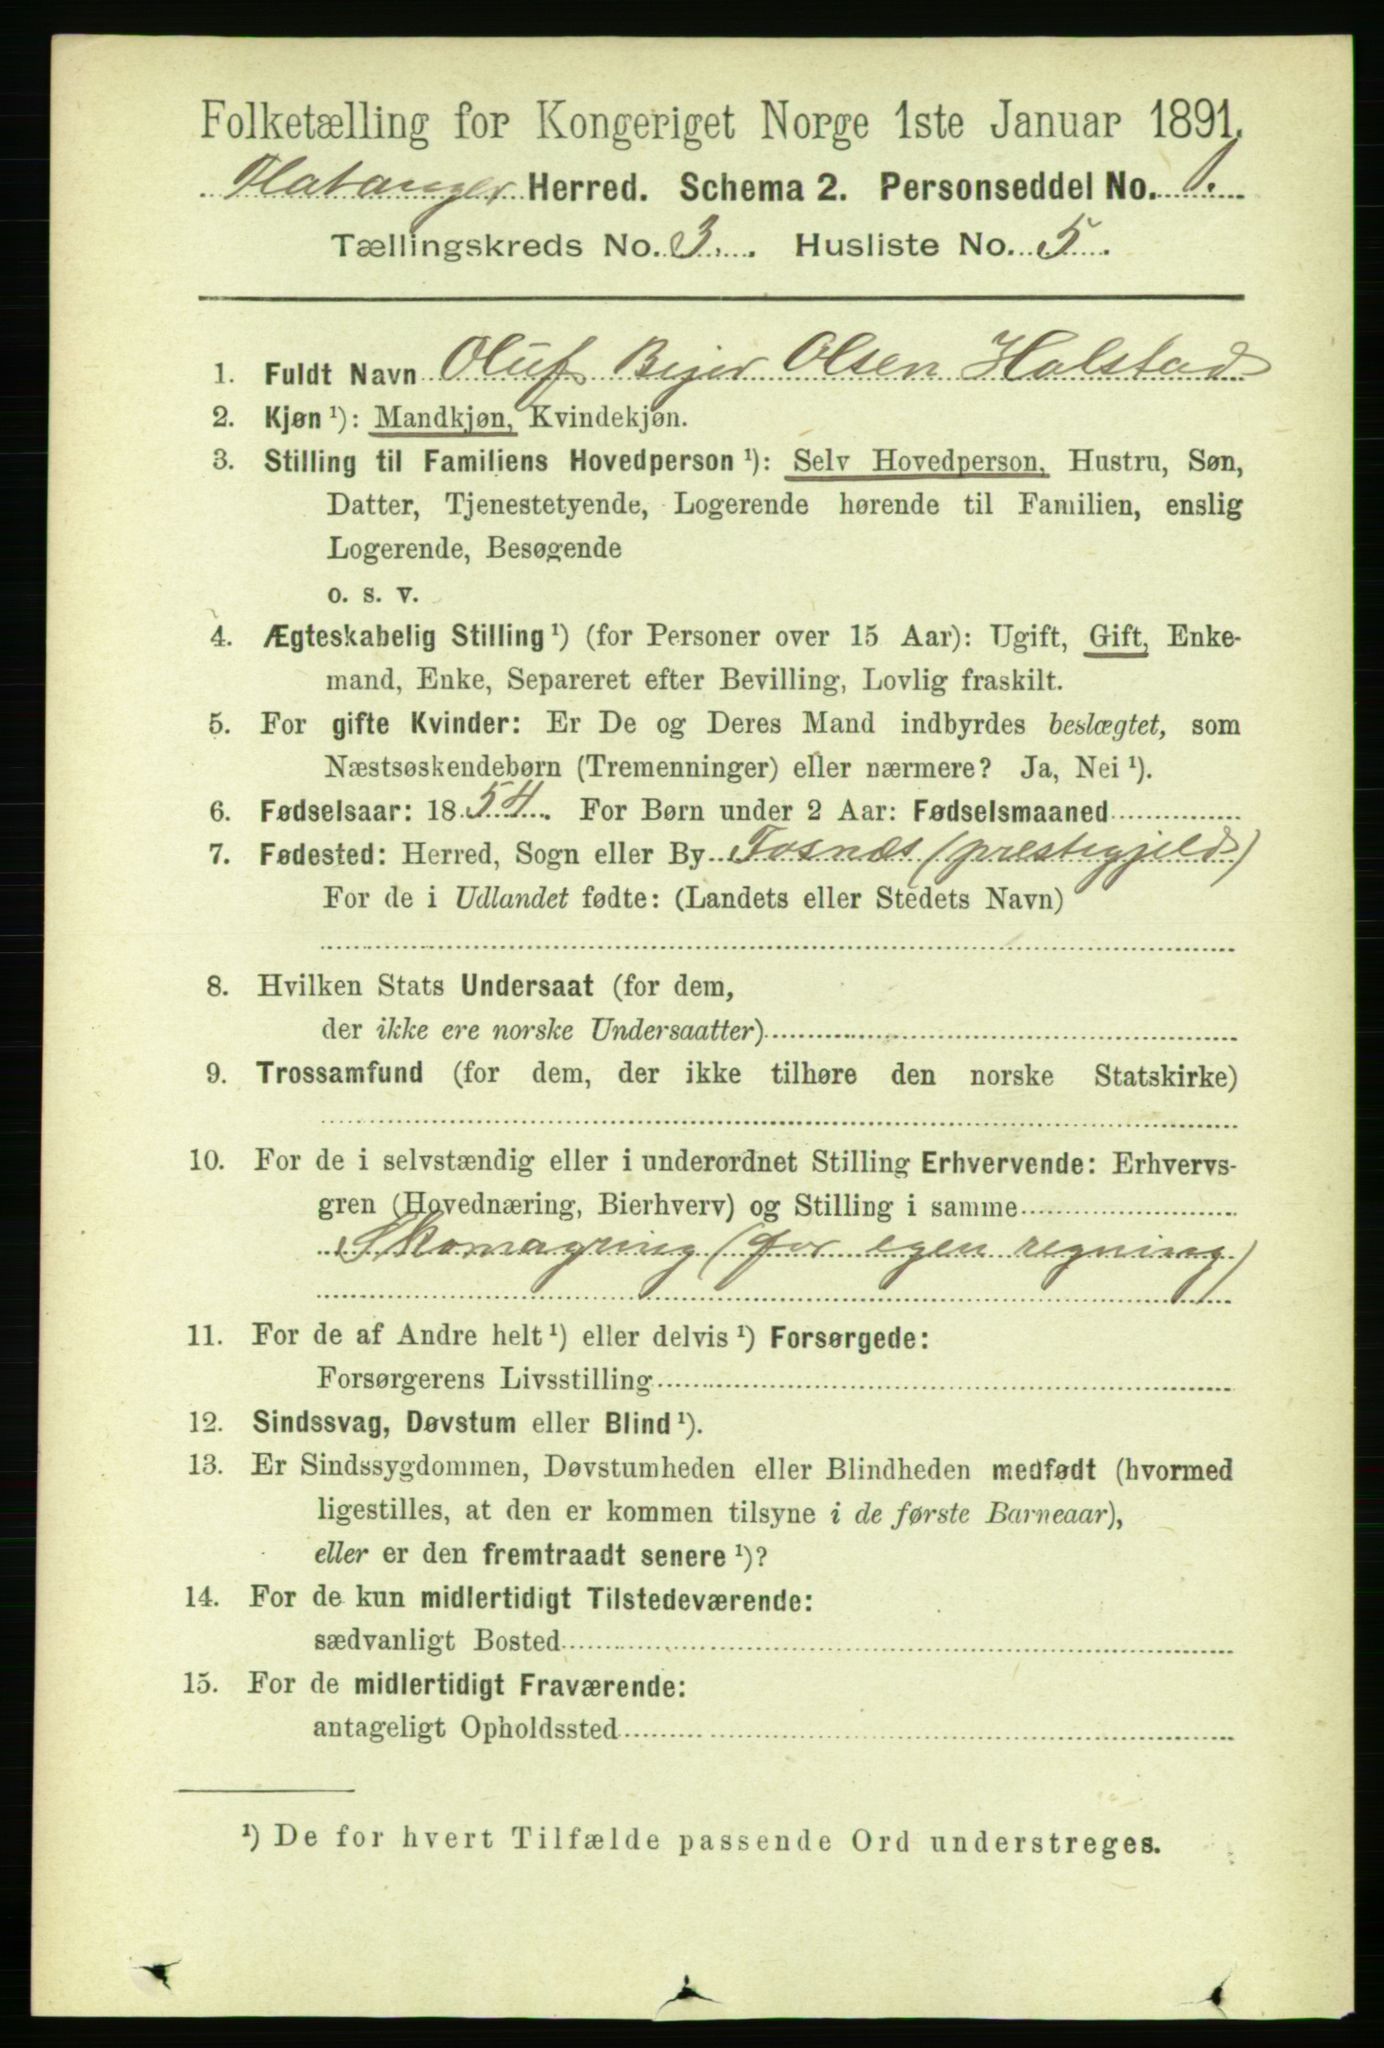 Folketælling for Kongeriget Norge 1ste Januar 1891.
Flatanger Herred. Schema 2. Personseddel No. 1.
Tællingskreds No. 3. Husliste No. 5.
1. Fuldt Navn Oluf Bejer Olsen Halstad
2. Kjøn ¹): Mandkjøn, Kvindekjøn.
3. Stilling til Familiens Hovedperson ¹): Selv Hovedperson, Hustru, Søn,
Datter, Tjenestetyende, Logerende hørende til Familien, enslig
Logerende, Besøgende
o. s. v.
4. Ægteskabelig Stilling ¹) (for Personer over 15 Aar): Ugift, Gift, Enke-
mand, Enke, Separeret efter Bevilling, Lovlig fraskilt.
5. For gifte Kvinder: Er De og Deres Mand indbyrdes beslægtet, som
Næstsøskendebørn (Tremenninger) eller nærmere? Ja, Nei ¹).
6. Fødselsaar: 1854. For Børn under 2 Aar: Fødselsmaaned
7. Fødested: Herred, Sogn eller By Fosnæs (prestegjeld)
For de i Udlandet fødte: (Landets eller Stedets Navn)
8. Hvilken Stats Undersaat (for dem,
der ikke ere norske Undersaatter)
9. Trossamfund (for dem, der ikke tilhøre den norske Statskirke)
10. For de i selvstændig eller i underordnet Stilling Erhvervende: Erhvervs-
gren (Hovednæring, Bierhverv) og Stilling i samme
Skomagring (for egen regning)
11. For de af Andre helt ¹) eller delvis ¹) Forsørgede:
Forsørgerens Livsstilling
12. Sindssvag, Døvstum eller Blind ¹).
13. Er Sindssygdommen, Døvstumheden eller Blindheden medfødt (hvormed
ligestilles, at den er kommen tilsyne i de første Barneaar),
eller er den fremtraadt senere ¹)?
14. For de kun midlertidigt Tilstedeværende:
sædvanligt Bosted
15. For de midlertidigt Fraværende:
antageligt Opholdssted
¹) De for hvert Tilfælde passende Ord understreges.